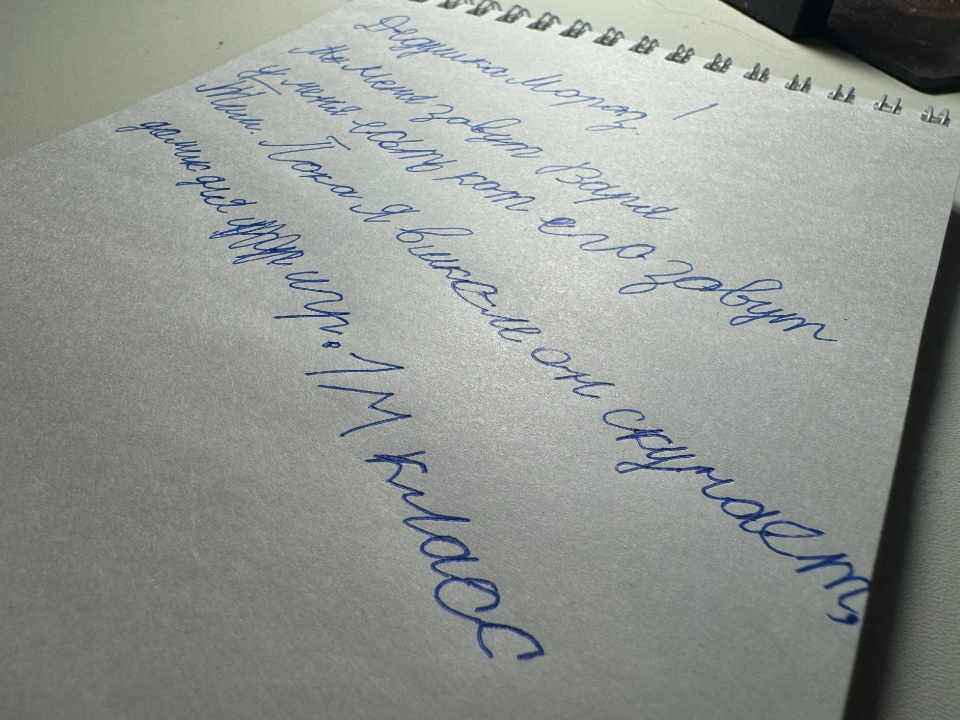 Дедушка Мороз!
меня зовут Варя
У меня есть кот его зовут
Тим. Пока я в школе он скучает,
домик для игр. 1 М класс